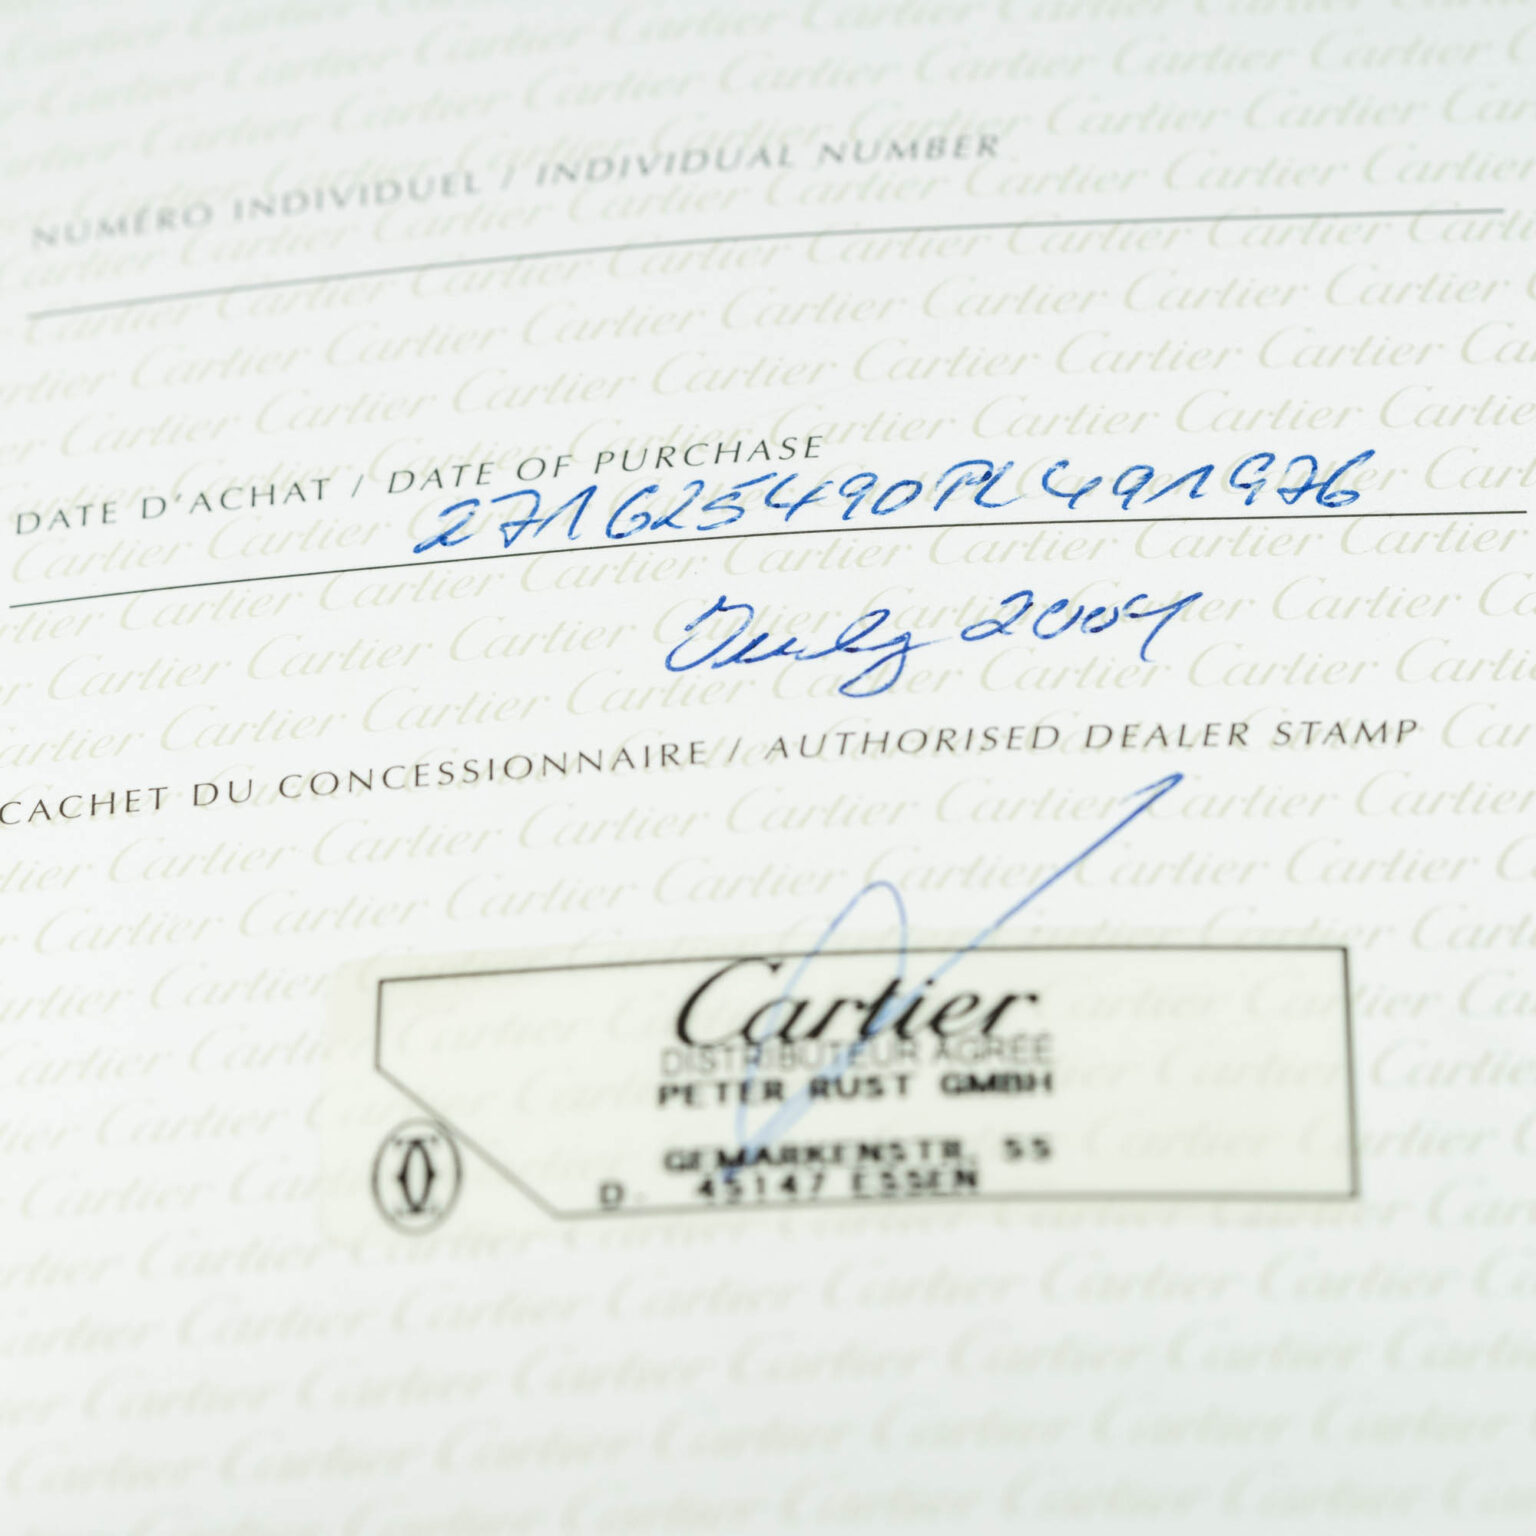 NUMÉRO INDIVIDUEL / INDIVIDUAL NUMBER
DATE D'ACHAT / DATE OF PURCHASE
271625490PL491976
July 2004
CACHET DU CONCESSIONNAIRE / AUTHORISED DEALER STAMP
Cartier
DISTRIBUTEUR AGRÉÉ
PETER RUST GMBH
GEMARKENSTR. 55
D. 45147 ESSEN